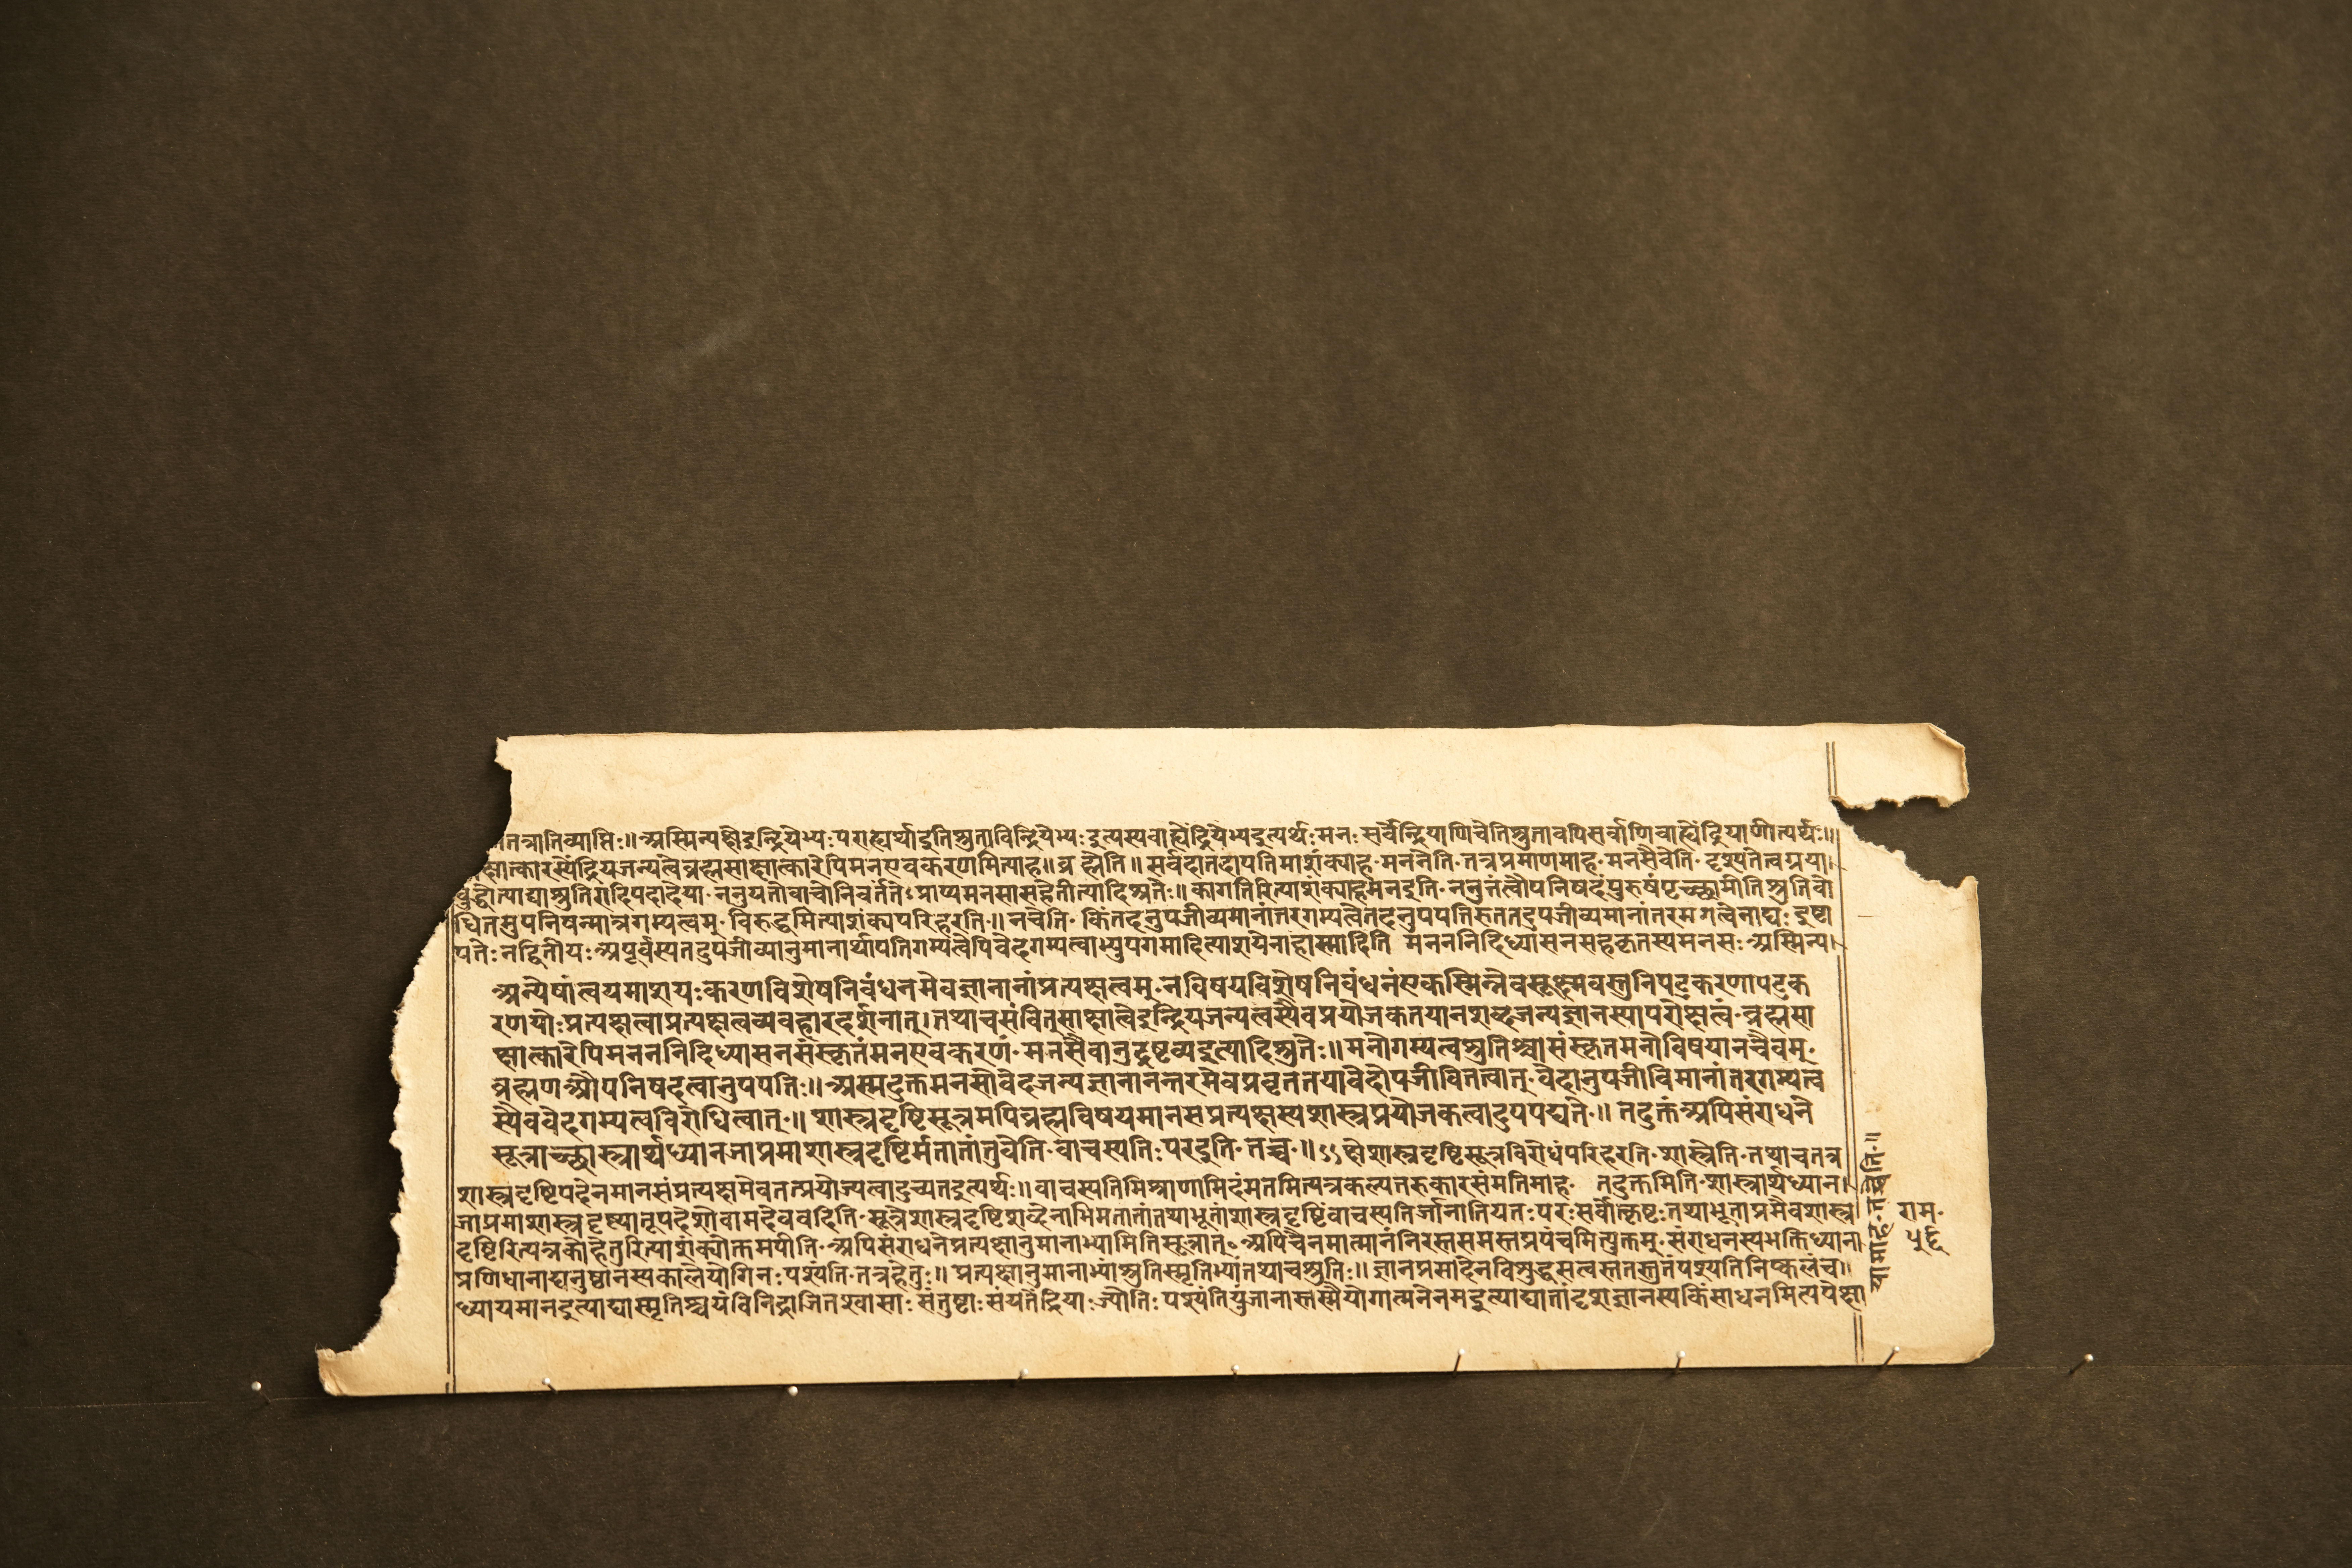 तत्रातिव्याप्तिः॥अस्मिन्पक्षेइन्द्रियेभ्यःपराह्यर्थाइतिश्रुताविन्द्रियेभ्यःइत्यस्यबाह्येंद्रियेभ्यइत्यर्थः·मनःसर्वेन्द्रियाणिचेतिश्रुतावपिसर्वाणिबाह्येंद्रियाणीत्यर्थः॥
क्षात्कारस्येंद्रियजन्यत्वेब्रह्मसाक्षात्कारेपिमनएवकरणमित्याह॥ब्रह्मेति॥सर्वदातदापतिमाशंक्याह·मननेति·तत्रप्रमाणमाह·मनसैवेति·दृश्यतेत्वग्रया
बुद्ध्येत्याद्याश्रुतिरादिपदादेया·ननुयतोवाचोनिवर्तंते·अप्राप्यमनसासहेतीत्यादिश्रुतेः॥कागतिरित्याशंक्याहमनइति·ननुतंत्वौपनिषदंपुरुषंपृच्छामीतिश्रुतिबो
धितमुपनिषन्मात्रगम्यत्वम्·विरुद्धमित्याशंक्यपरिहरति·॥नचेति·किंतदनुपजीव्यमानांतरगम्यत्वेतदनुपपतिरुततदुपजीव्यमानांतरमगत्वेनाद्यः इष्टा
पतेःनद्वितीयःअपूर्वस्यतदुपजीव्यानुमानार्थापतिगम्यत्वेपिवेदगम्यत्वाभ्युपगमादित्याशयेनाहास्मादिति मनननिदिध्यासनसहकृतस्यमनसःअस्मिन्प
अन्येषांत्वयमाशयःकरणविशेषनिबंधनमेवज्ञानानांप्रत्यक्षत्वम्·नविषयविशेषनिबंधनंएकस्मिन्नेवसूक्ष्मवस्तुनिपटुकरणापटुक
रणयोःप्रत्यक्षत्वाप्रत्यक्षत्वव्यवहारदर्शनात्।तथाचसंवित्साक्षात्वेइन्द्रियजन्यत्वस्यैवप्रयोजकतयानशब्दजन्यज्ञानस्यापरोक्षत्वं·ब्रह्मसा
क्षात्कारेपिमनननिदिध्यासनसंस्कृतंमनएवकरणं·मनसैवानुद्रष्टव्यइत्यादिश्रुतेः॥मनोगम्यत्वश्रुतिश्चासंस्कृतमनोविषयानचैवम्·
ब्रह्मणऔपनिषदत्वानुपपतिः॥अस्मदुक्तमनसोवेदजन्यज्ञानानन्तरमेवप्रवृततयावेदोपजीवितत्वात्·वेदानुपजीविमानांतरगम्यत्व
स्यैववेदगम्यत्वविरोधित्वात्·॥शास्त्रदृष्टिसूत्रमपिब्रह्मविषयमानसप्रत्यक्षस्यशास्त्रप्रयोजकत्वादुपपद्यते·॥तदुक्तंअपिसंराधने
सूत्राच्छास्त्रार्थध्यानजाप्रमाशास्त्रदृष्टिर्मतातांतुवेति·वाचस्पतिःपरइति·तच्च·॥ऽऽक्षेशास्त्रदृष्टिसूत्रविरोधंपरिहरति·शास्त्रेति·तथाचतत्र
शास्त्रदृष्टिपदेनमानसंप्रत्यक्षमेवतत्प्रयोज्यत्वादुच्यतइत्यर्थः॥वाचस्पतिमिश्राणामिदंमतमित्यत्रकल्पतरुकारसंमतिमाह· तदुक्तमिति·शास्त्रार्थध्यान
जाप्रमाशास्त्रदृष्ट्यातूपदेशोवामदेववदिति·सूत्रेशास्त्रदृष्टिशब्देनाभिमतातांतथाभूतांशास्त्रदृष्टिंवाचस्पतिर्जानातियतःपरःसर्वोत्कृष्टःतथाभूताप्रमैवशास्त्र
दृष्टिरित्यत्रकोहेतुरित्याशंक्योक्तमपीति·अपिसंराधनेप्रत्यक्षानुमानाभ्यामितिसूत्रात्॰अपिचैनमात्मानंनिरस्तसमस्तप्रपंचमित्युक्तम्·संराधनस्यभक्तिध्याना
प्रणिधानाद्यनुष्ठानस्यकालेयोगिनःपश्यंति·तत्रहेतुः॥प्रत्यक्षानुमानाभ्यांश्रुतिस्मृतिभ्यांतथाचश्रुतिः॥ज्ञानप्रसादेनविशुद्धसत्वस्ततस्तुतंपश्यतिनिष्कलंच॥
ध्यायमानइत्याद्यास्मृतिश्चयंविनिद्राजितश्वासाः संतुष्टाःसंयतेंद्रियाःज्योतिःपश्यंतियुंजानास्तस्मैयोगात्मनेनमइत्याद्यातादृशज्ञानस्यकिंसाधनमित्यपेक्षा
राम·